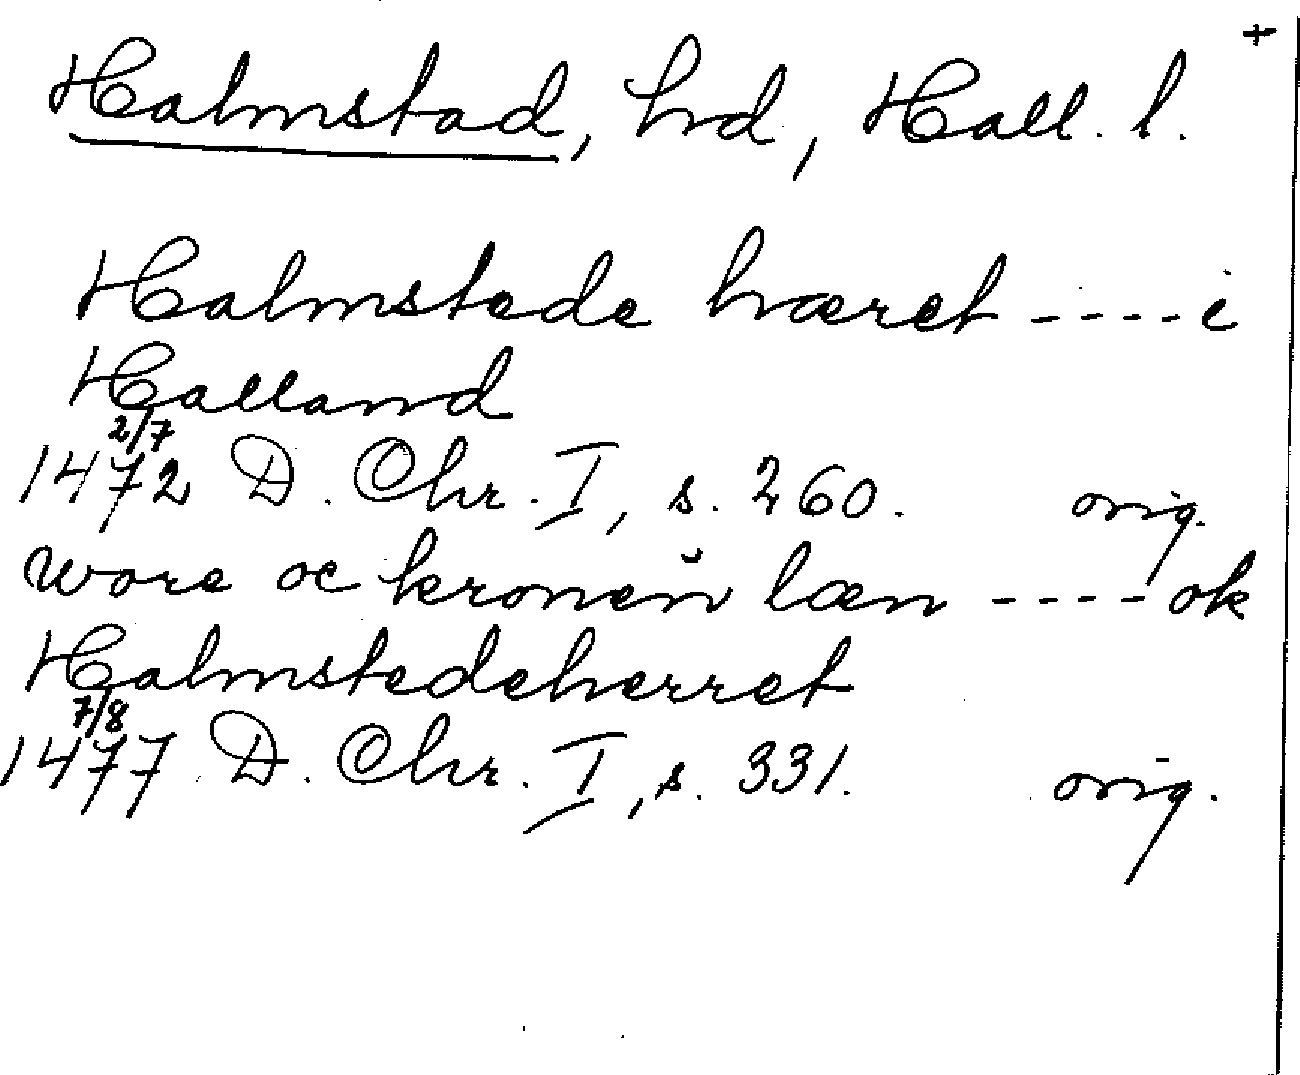 +
Halmstad, hd, Hall. l.
Halmstede hæret ---- i
Halland
2/7
1472 D. Chr. I, s. 260. orig.
wore oc kronen̆ læn ---- ok
Halmstedeherret
7/8
1477 D. Chr. I, s. 331. orig.